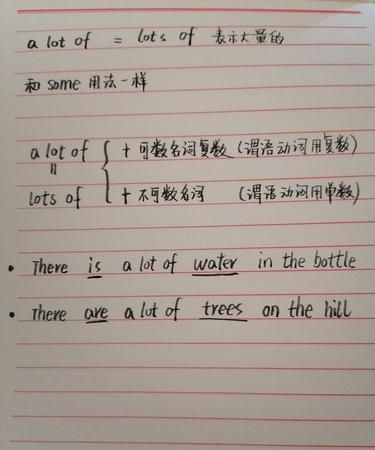 a lot of = lots of 表示大量的
和 some 用法一样
a lot of { + 可数名词复数 (谓语动词用复数)
=
lots of + 不可数名词 (谓语动词用单数)
• There is a lot of water in the bottle
• There are a lot of trees on the hill